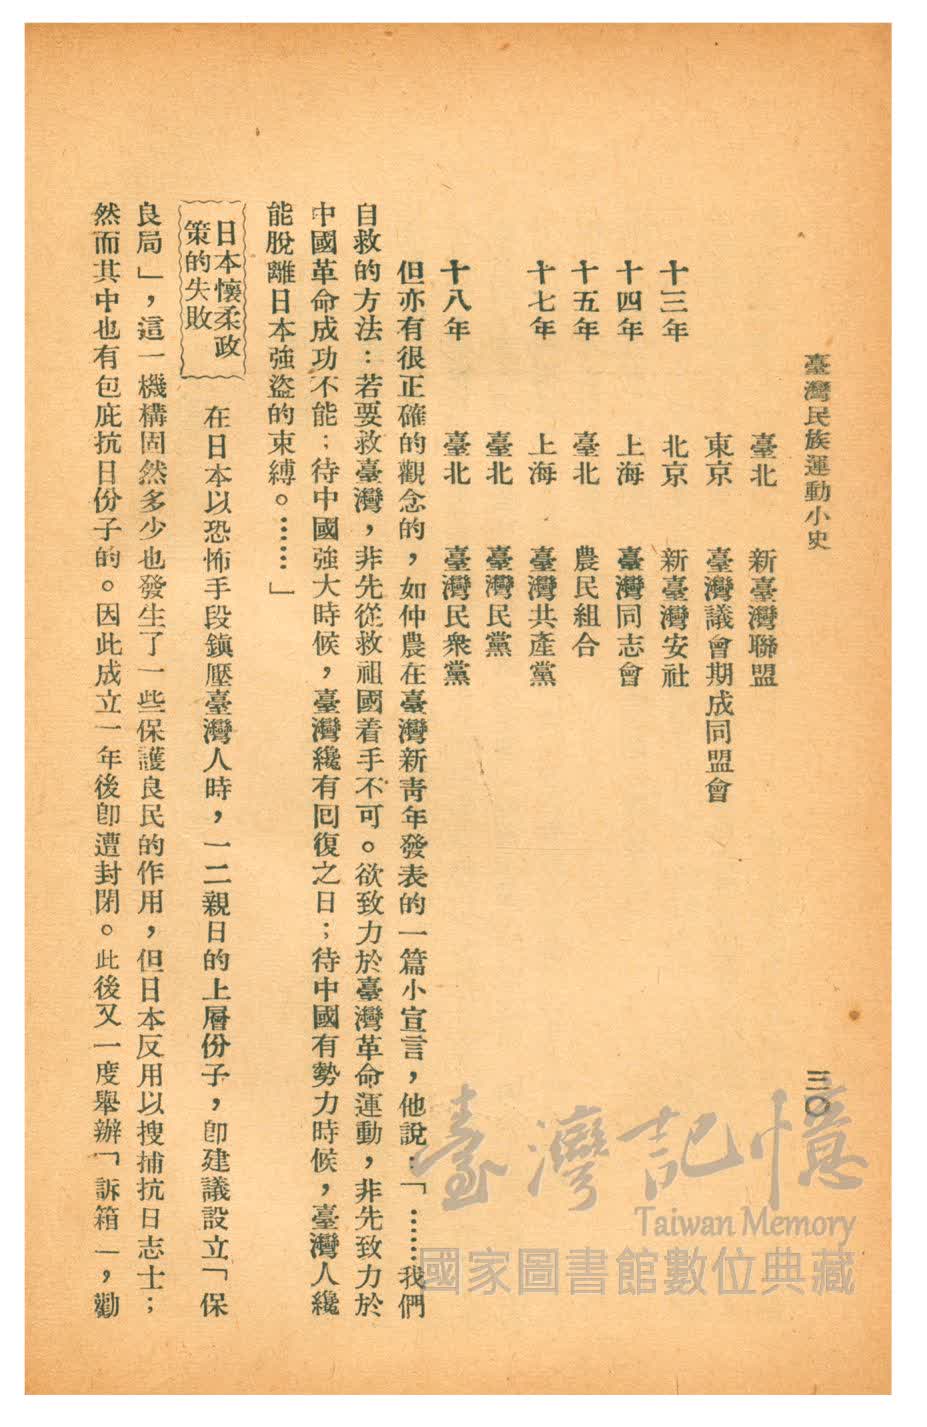 臺灣民族運動小史
三〇
臺北 新臺灣聯盟
東京 臺灣議會期成同盟會
十三年 北京 新臺灣安社
十四年 上海 臺灣同志會
十五年 臺北 農民組合
十七年 上海 臺灣共產黨
臺北 臺灣民黨
十八年 臺北 臺灣民衆黨
但亦有很正確的觀念的，如仲農在臺灣新靑年發表的一篇小宣言，他說：「……我們
自救的方法：若要救臺灣，非先從救祖國着手不可。欲致力於臺灣革命運動，非先致力於
中國革命成功不能；待中國強大時候，臺灣纔有囘復之日；待中國有勢力時候，臺灣人纔
能脫離日本強盜的束縛。……」
日本懷柔政
策的失敗
在日本以恐怖手段鎭壓臺灣人時，一二親日的上層份子，卽建議設立「保
良局」，這一機構固然多少也發生了一些保護良民的作用，但日本反用以搜捕抗日志士；
然而其中也有包庇抗日份子的。因此成立一年後卽遭封閉。此後又一度舉辦「訴箱」，勸
臺灣記憶
Taiwan Memory
國家圖書館數位典藏